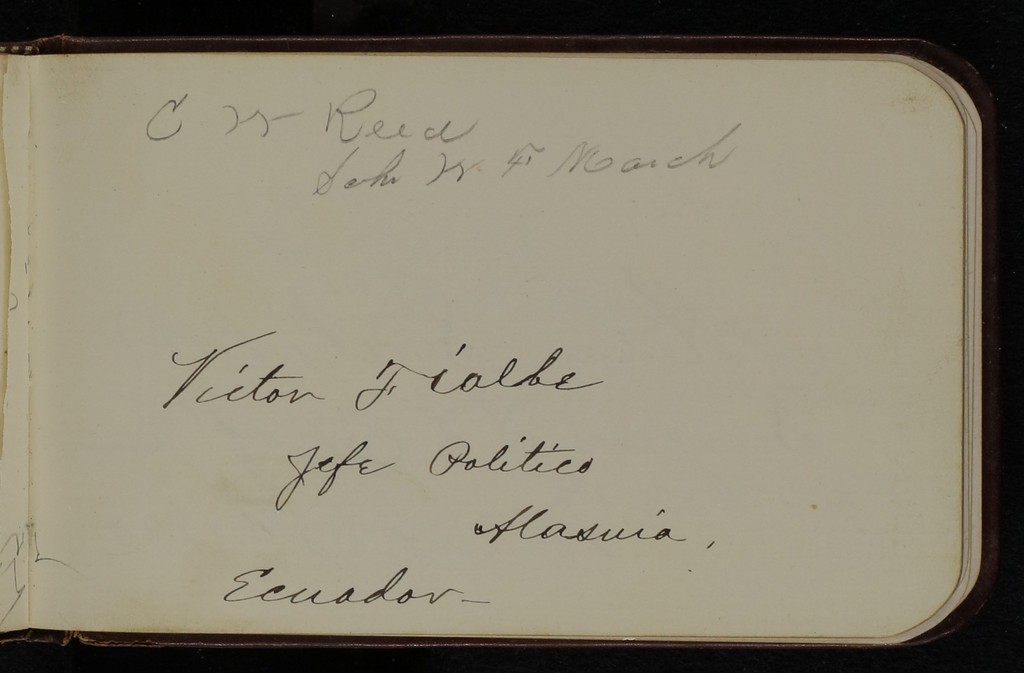 C W Reed
John W F March
Victor Fialbe
Jefe Politico
Alasuia,
Ecuador—